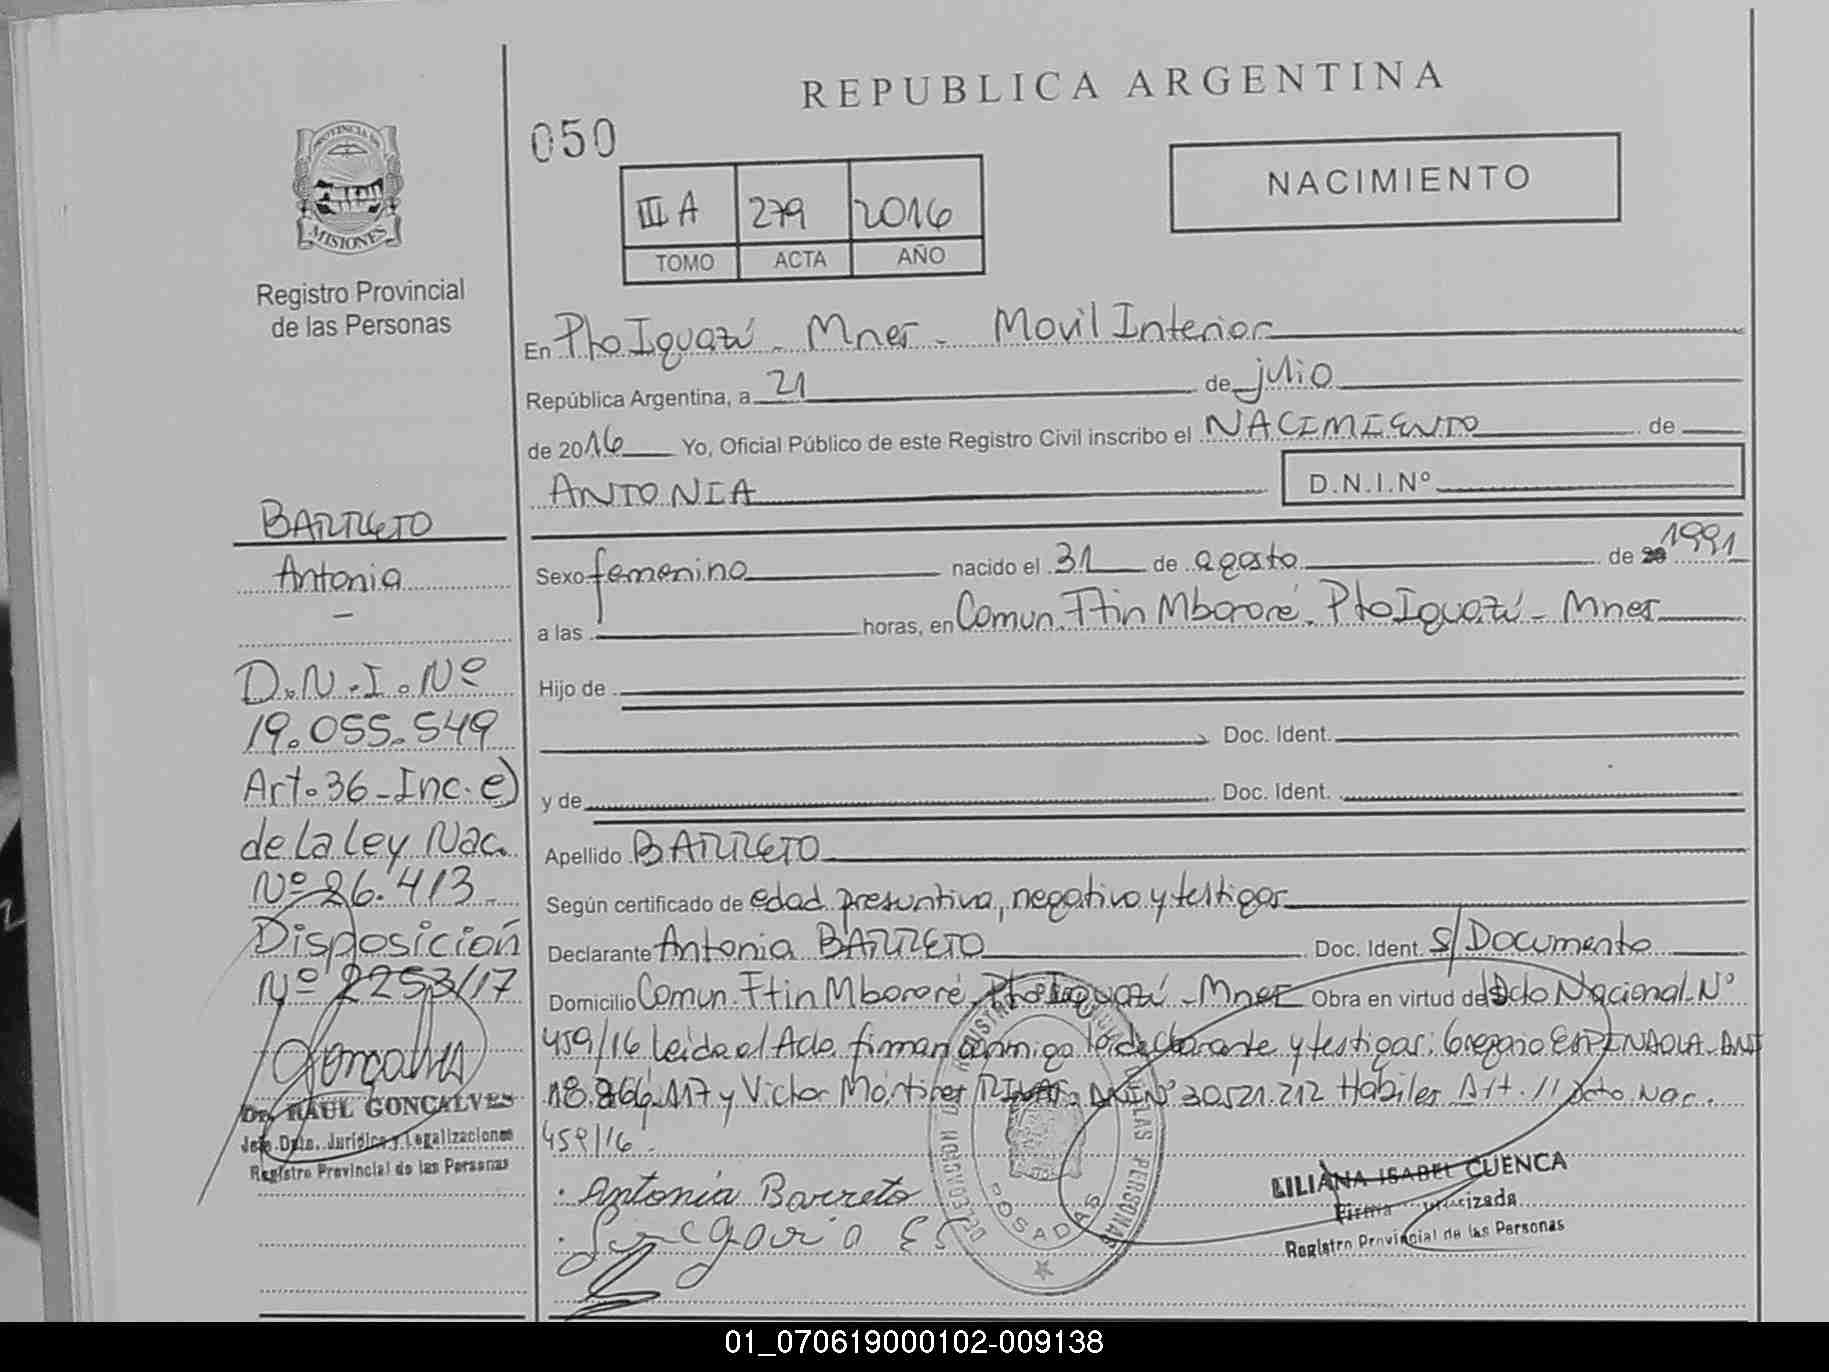 REPUBLICA ARGENTINA
050
NACIMIENTO
III A 279 2016
TOMO ACTA AÑO
PROVINCIA DE
MISIONES
Registro Provincial
de las Personas
En Pto Iguazú - Mnes - Movil Interior
República Argentina, a 21 de julio
de 2016 Yo, Oficial Público de este Registro Civil inscribo el NACIMIENTO de
ANTONIA D.N.I.Nº
BARRETO
Antonia
Sexo femenino nacido el 31 de agosto de 20 1991
a las horas, en Comun. Ftin Mbororé. Pto Iguazú - Mnes
D.N.I.Nº
19.055.549
Art. 36 - Inc. e)
de la Ley Nac.
Nº 26.413
Disposición
Nº 2253/17
Dr. RAUL GONCALVES
Jefe Dpto. Jurídico y Legalizaciones
Registro Provincial de las Personas
Hijo de
Doc. Ident.
y de Doc. Ident.
Apellido BARRETO
Según certificado de edad presuntiva, negativo y testigos
Declarante Antonia BARRETO Doc. Ident. S/Documento
Domicilio Comun. Ftin Mbororé. Pto Iguazú - Mnes Obra en virtud del Dcto Nacional Nº
459/16 Leida el Acta firman conmigo la declarante y testigos: Gregorio ESPINDOLA DNI
18.866.117 y Victor Martinez RIVAS DNI Nº 30521.212 Habiles Art. 11 Dcto Nac.
459/16.
Antonia Barreto
POSADAS
LILIANA ISABEL CUENCA
Firma Autorizada
Registro Provincial de las Personas
01_070619000102-009138